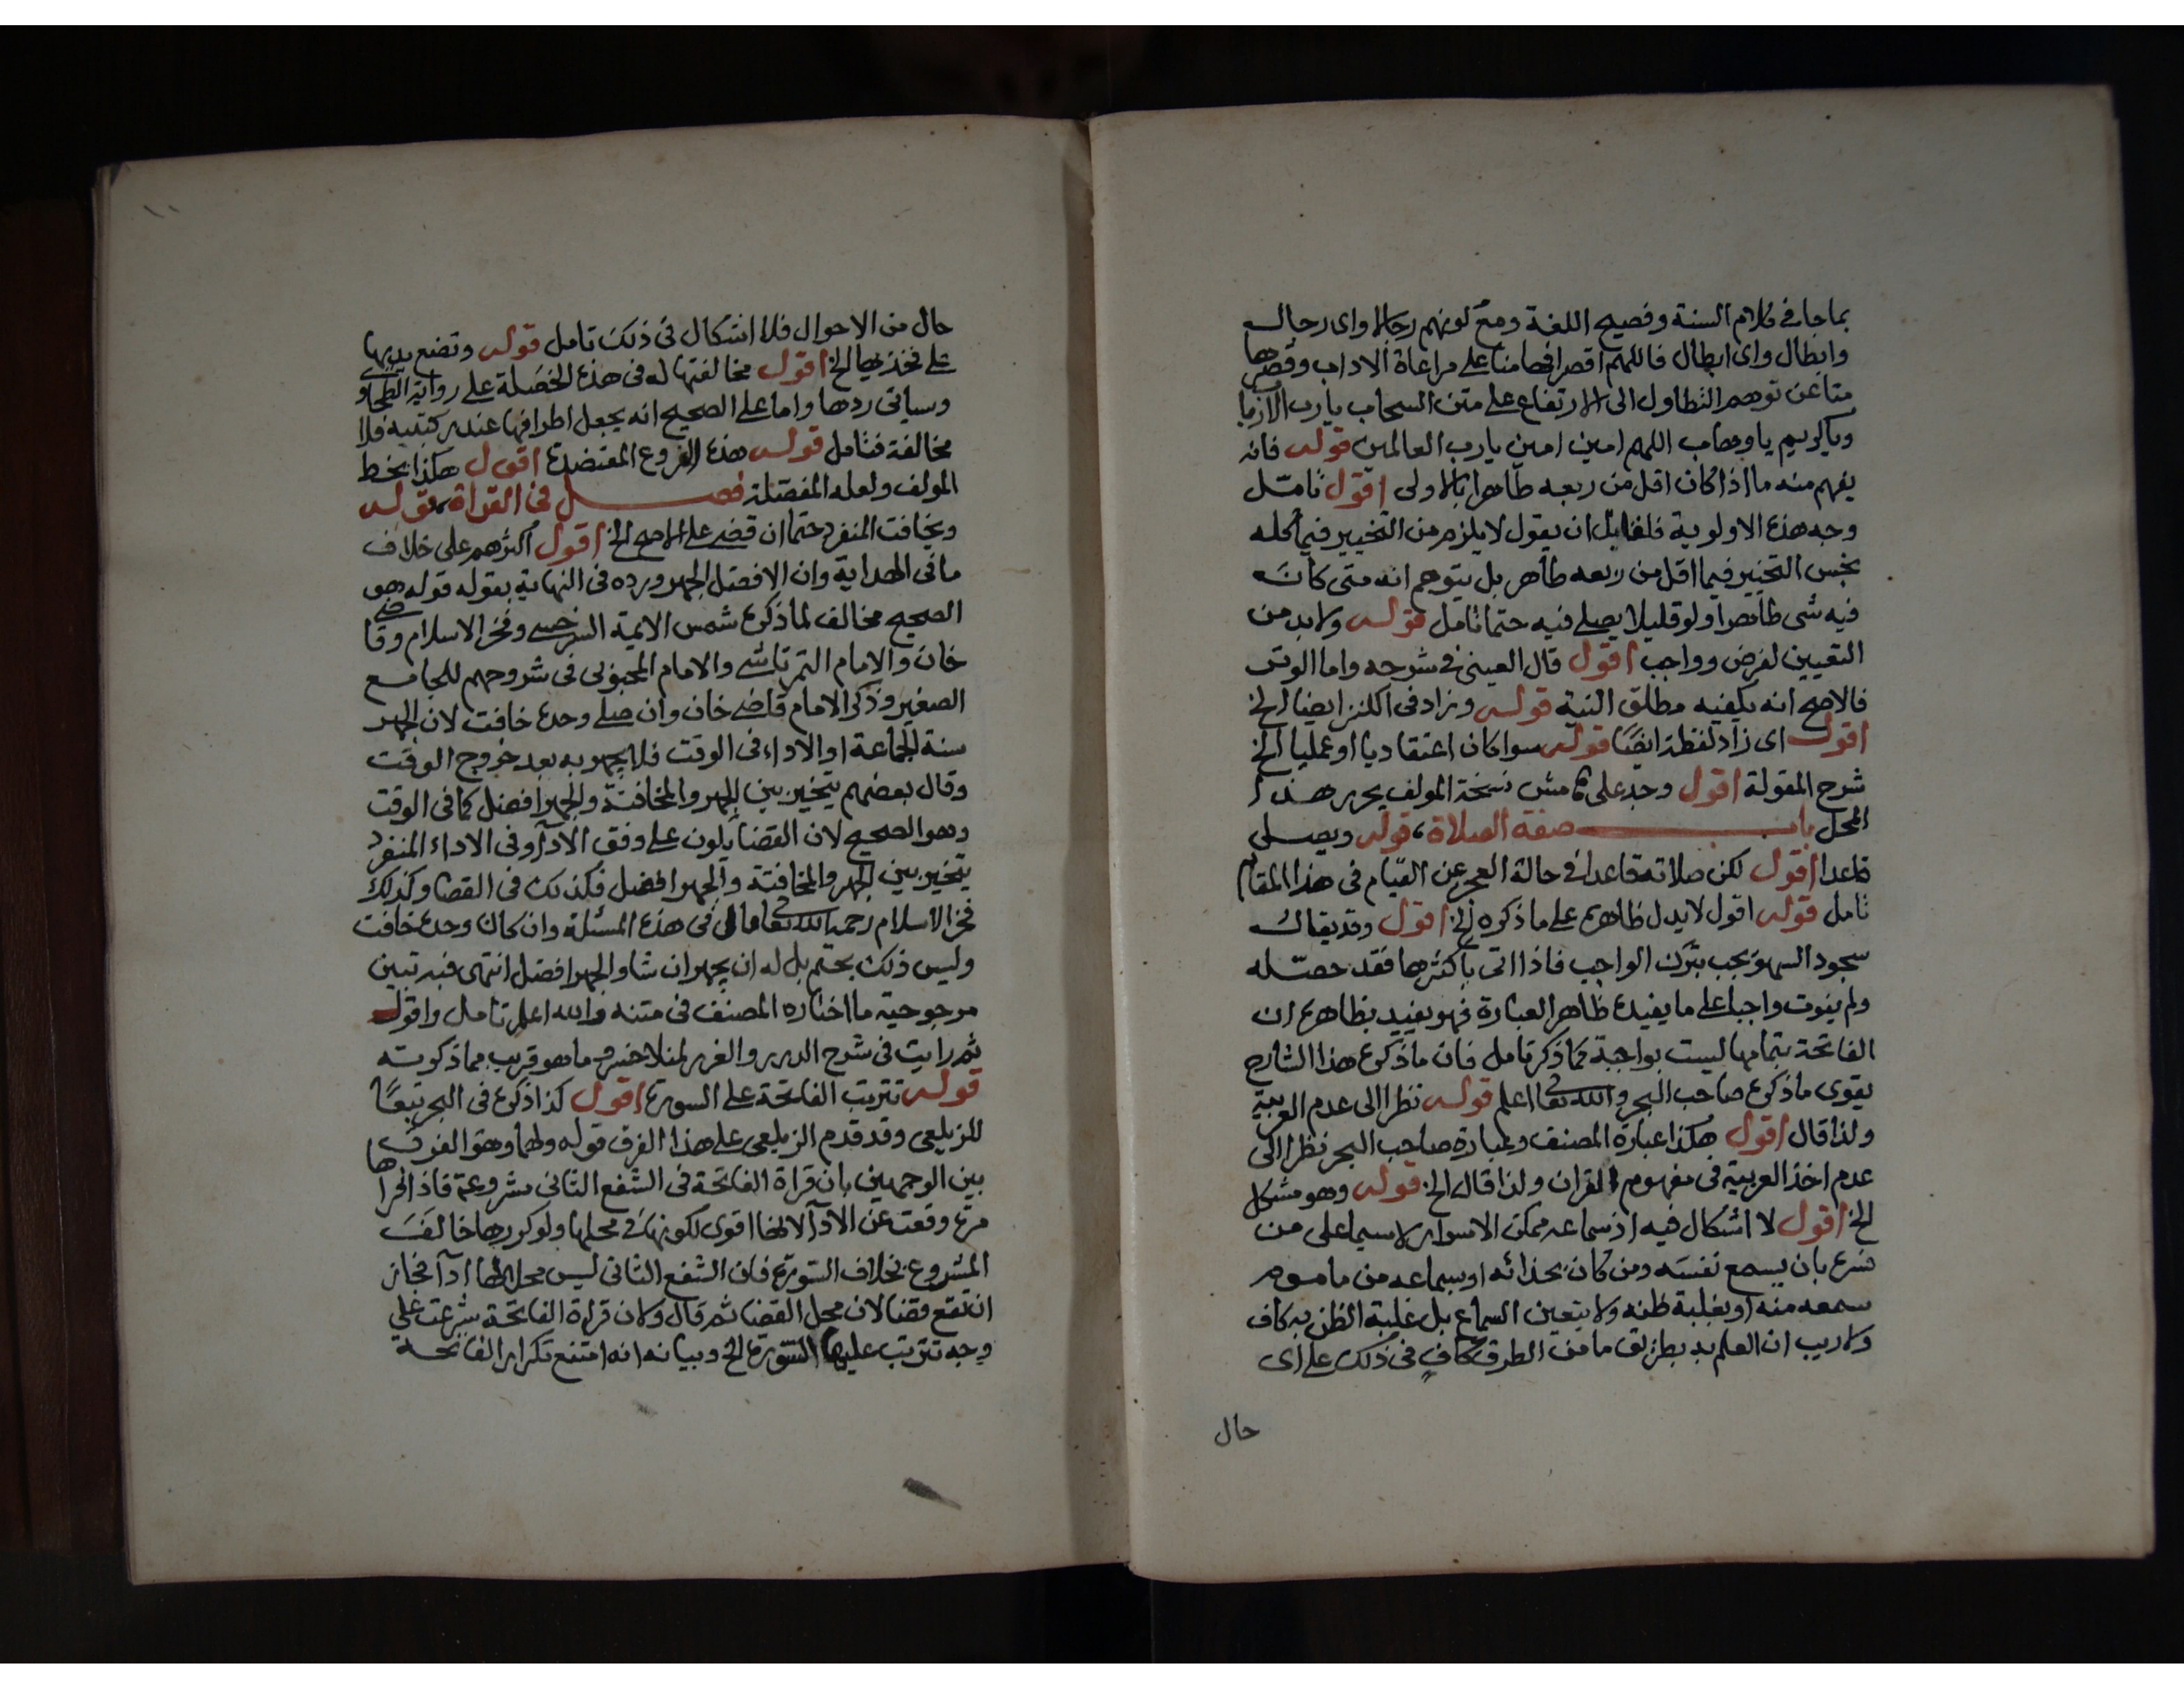 بما جا في كلام السنة وفصيح اللغة ومع كونهم رجالا واى رجال
وابطال واى ابطال فاللهم اقصر افهامنا على مراعاة الاداب وقصرها
متا عن توهم التطاول الى الارتفاع على متن السحاب يارب الارباب
وياكريم ياوهاب اللهم امين امين يارب العالمين قوله فانه
يفهم منه ما اذا كان اقل من ربعه طاهرا بالاولى اقول تامل
وجه هذه الاولوية فلقايل ان يقول لا يلزم من التخيير فيما كله
نجس التخيير فيما اقل من ربعه طاهر بل يتوهم انه متى كان
فيه شى طاهرا ولو قليلا يصلى فيه حتما تامل قوله ولابد من
التعيين لفرض وواجب اقول قال العينى في شرحه واما الوتر
فالاصح انه يكفيه مطلق النية قوله وزاد فى الكنز ايضا الخ
اقول اى زاد لفظة ايضا قوله سوا كان اعتقاديا او عمليا الخ
شرح المقولة اقول وجد على هامش نسخة المولف يحرر هذا
المحل باب صفة الصلاة، قوله ويصلى
قاعدا اقول لكن صلاته قاعدا في حالة العجز عن القيام فى هذا المقام
تامل قوله اقول لا يدل ظاهره على ما ذكره الخ اقول وقد يقال
سجود السهو يجب بترك الواجب فاذا اتى باكثرها فقد حصله
ولم يفوت واجبا على ما يفيده ظاهر العبارة فهو يفيد بظاهره ان
الفاتحة بتمامها ليست بواجبة كما ذكر تامل فان ما ذكره هذا الشارح
يقوى ما ذكره صاحب البحر والله تعالى اعلم قوله نظرا الى عدم العربية
ولذا قال اقول هكذا عبارة المصنف وعبارة صاحب البحر نظرا الى
عدم اخذ العربية فى مفهوم القران ولذا قال الخ قوله وهو مشكل
الخ اقول لا اشكال فيه اذ سماعه ممكن الاسرار لاسيما على من
شرع بان يسمع نفسه ومن كان بحذائه او بسماعه من ماموم
سمعه منه او بغلبة ظنه ولا يتعين السماع بل غلبة الظن به كاف
ولا ريب ان العلم به بطريق ما من الطرق كاف فى ذلك على اى
حال
١١
حال من الاحوال فلا اشكال فى ذلك تامل قوله وتضع يديها
على فخذيها الخ اقول مخالفتها له فى هذه الخصلة على رواية الطحاوى
وسياتى ردها واما على الصحيح انه يجعل اطرافها عند ركبتيه فلا
مخالفة فتامل قوله هذه الفروع المقتضدة اقول هكذا بخط
المولف ولعله المفصلة فصل فى القراة، قوله
ويخافت المنفرد حتما ان قضى على الاصح الخ اقول اكثرهم على خلاف
ما فى الهداية وان الافضل الجهر ورده فى النهاية بقوله قوله هو
الصحيح مخالف لما ذكره شمس الايمة السرخسى وفخر الاسلام وقاضى
خان والامام التمرتاشى والامام المحبوبى فى شروحهم للجامع
الصغير وذكر الامام قاضى خان وان صلى وحده خافت لان الجهر
سنة الجماعة او الاداء فى الوقت فلا يجهر به بعد خروج الوقت
وقال بعضهم يتخير بين الجهر والمخافتة والجهر افضل كما فى الوقت
وهو الصحيح لان القضا يكون على وفق الادآ وفى الاداء المنفرد
يتخير بين الجهر والمخافتة والجهر افضل فكذلك فى القضا وكذلك
فخر الاسلام رحمه الله تعالى قال فى هذه المسئلة وان كان وحده خافت
وليس ذلك بحتم بل له ان يجهر ان شا والجهر افضل انتهى فبه تبين
مرجوحية ما اختاره المصنف فى متنه والله اعلم تامل واقول
ثم رايت فى شرح الدرر والغرر لمنلا خسرو ما هو قريب مما ذكرته
قوله تترتب الفاتحة على السورة اقول كذا ذكره فى البحر تبعا
للزيلعى وقد قدم الزيلعى على هذا الفرق قوله ولهما وهو الفرق
بين الوجهين بان قراة الفاتحة فى الشفع الثانى مشروعة فاذا قراها
مرة وقعت عن الادآ لانها اقوى لكونها فى محلها ولو كررها خالف
المشروع بخلاف السورة فان الشفع الثانى ليس محل لها ادآ فجاز
ان تقع قضا لان محل القضا ثم قال ولان قراة الفاتحة شرعت على
وجه تترتب عليها السورة الخ وبيانه انه امتنع تكرار الفاتحة